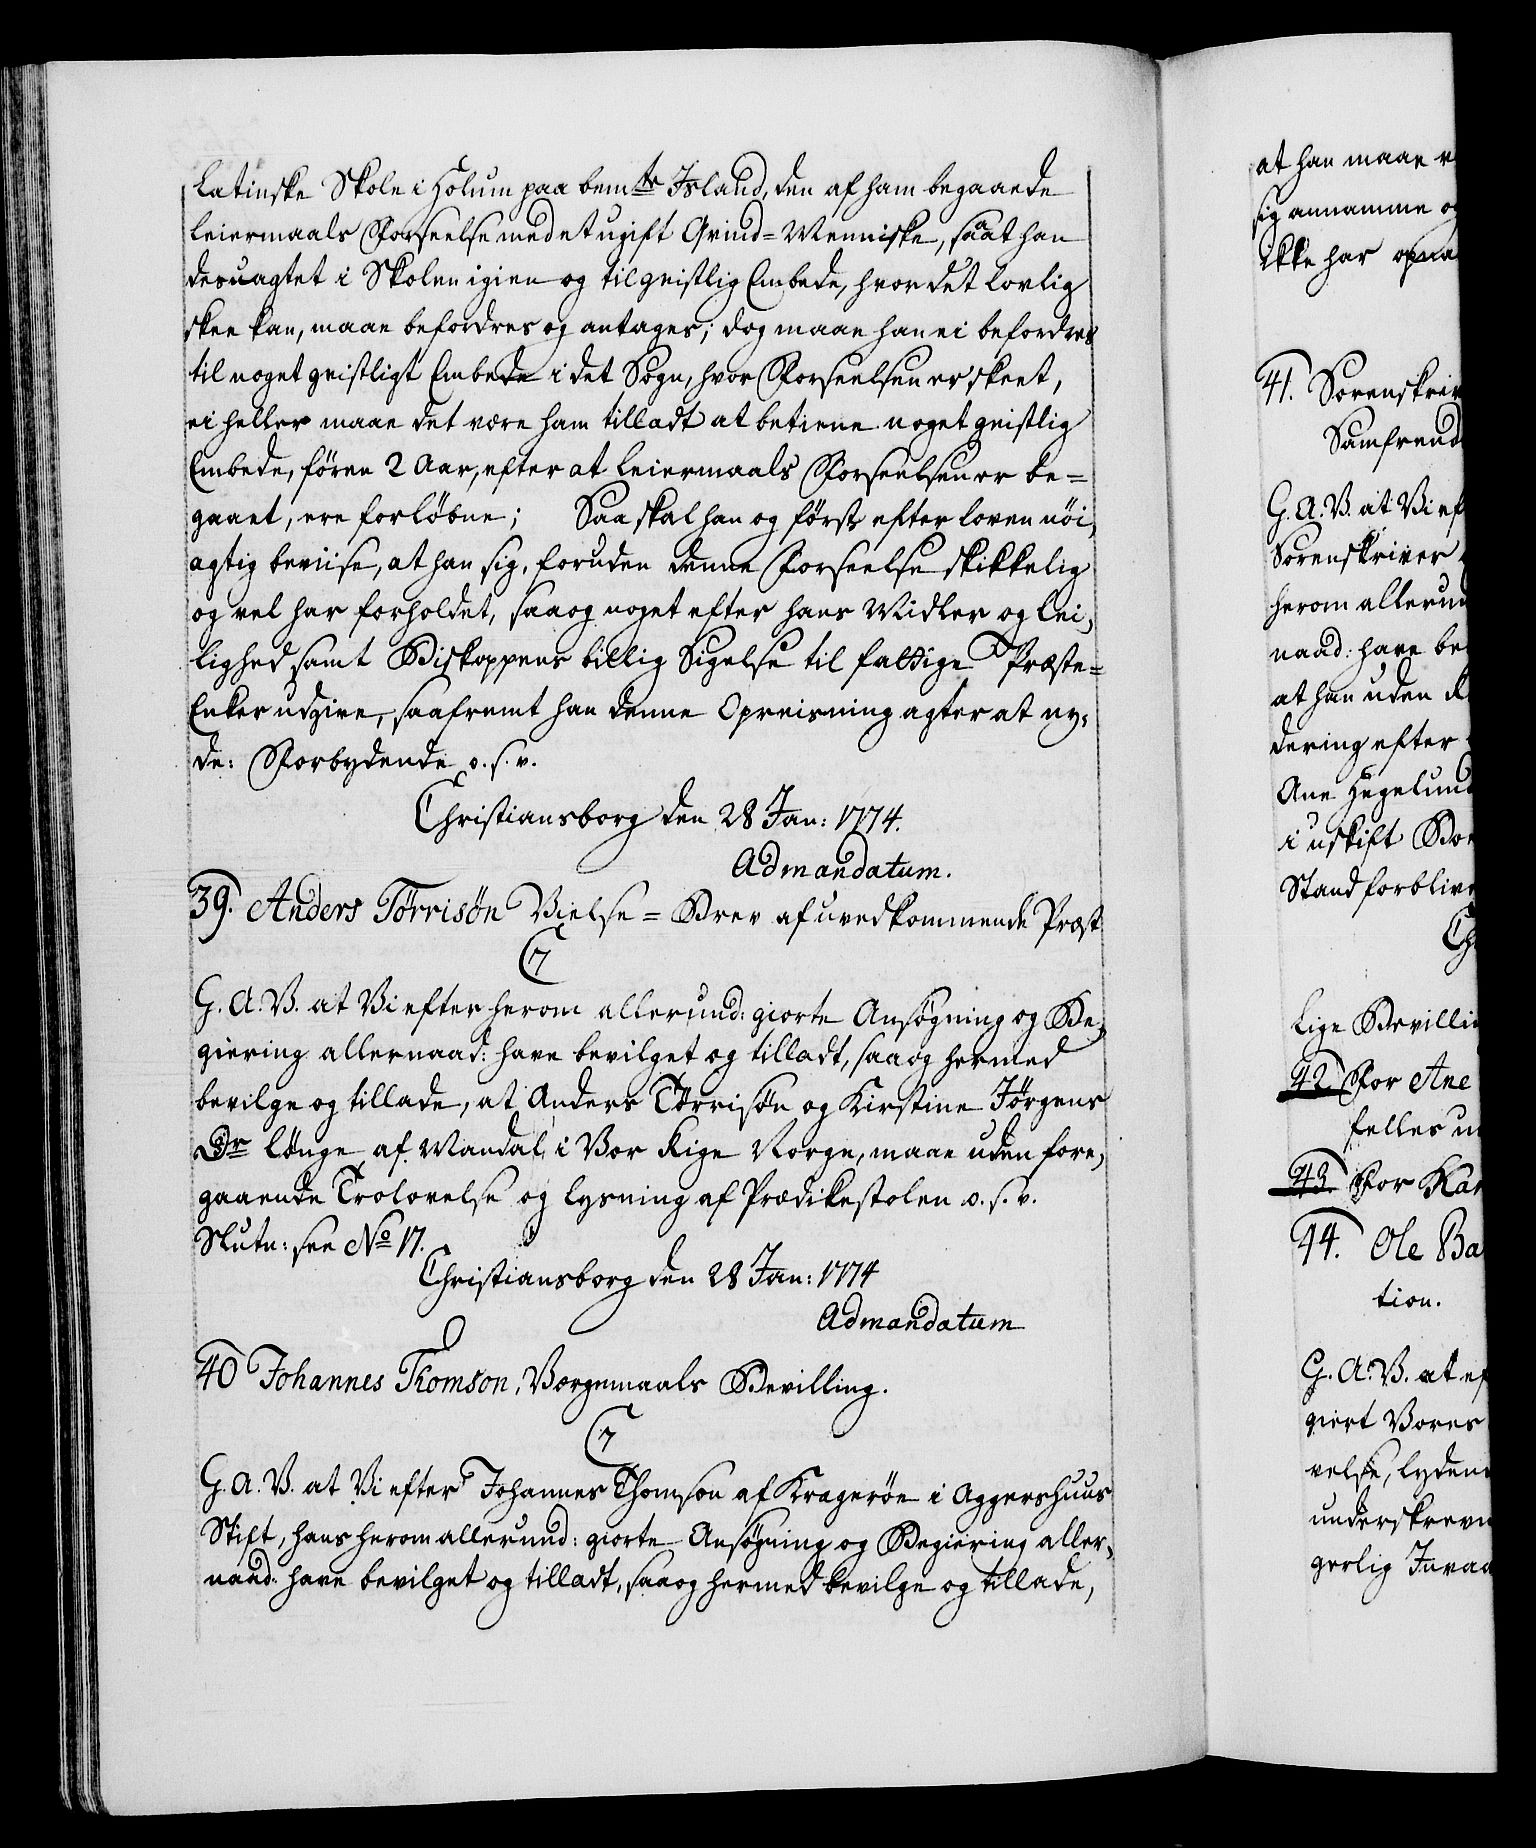 Latinske Skole i Holum paa bemte Jsland, den af ham begaaede
Leiermaals Forseelse med et ugift Qvind=Menniske, saa at han
desuagtet i Skolen igien og til geistlig Embede, hvor det lovlig
skee kan, maae befordres og antages; dog maae han ei befordres
til noget geistligt Embede i det Sogn, hvor Forseelsen er skeet,
ei heller maae det være ham tilladt at betiene noget geistlig
Embede, føren 2 Aar, efter at Leiermaals Forseelsen er be=
gaaet, ere forløbne; Saa skal han og først efter loven nøi,
agtig beviise, at han sig, foruden denne Forseelse skikkelig
og vel har forholdet, saa og noget efter hans Midler og Lei,
lighed samt Biskoppens billig Sigelse til fattige Præste=
Enker udgive, saafremt han denne Opreisning agter at ny,
de: Forbydende o. s. v.
Christiansborg den 28 Jan: 1774.
Admandatum.
39. Anders Tørrisøn Vielse=Brev af uvedkommende Præst
C7
G. A. V. at Vi efter herom allerund: giorte Ansøgning og Be,
giering allernaad: have bevilget og tilladt, saa og hermed
bevilge og tillade, at Anders Tørrisøn og Kirstine Jørgens
Dr Lønge af Mandal i Vor Rige Norge, maae uden fore,
gaaende Trolovelse og Lysning af Prædikestolen o. s. v.
Slutn: see No 17.
Christiansborg den 28 Jan: 1774
Admandatum
40 Johannes Thomson, Værgemaals Bevilling.
C7
G. A. V. at Vi efter Johannes Thomson af Kragerøe i Aggershuus
Stift, hans herom allerund: giorte Ansøgning og Begiering aller,
naad: have bevilget og tilladt, saa og hermed bevilge og tillade,
at han maae
sig annamme og
ikke har opna
41. Sorenskriv
Samfrend
G. A. V. at Vi ef
Sorenskriver
herom allerun
naad: have be
at han uden
dering efter
Ane Hegelund
i uskift Boe
Stand forblive
Ch
Lige Bevillin
42 For Ane
felles
43. For Kar
44. Ole Ba
tion.
G. A. V. at ef
giert Vores
velse, lyden
underskrevn
gerlig Jnvaa